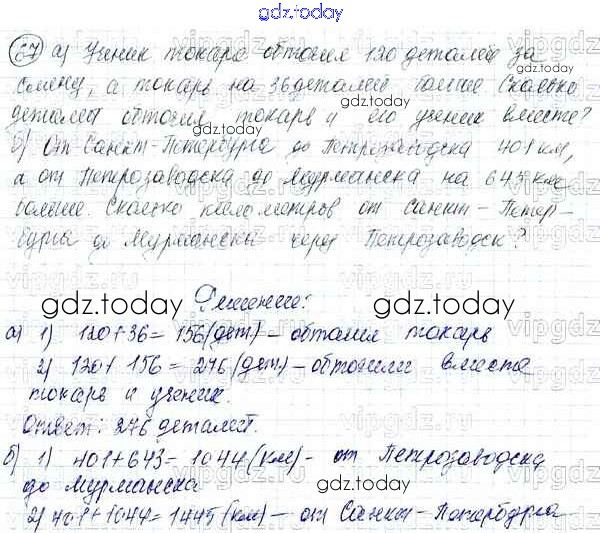 gdz.today
67 а) Ученик токаря обточил 120 деталей за
смену, а токарь на 36 деталей больше. Сколько
gdz.today
деталей обточил токарь и его ученик вместе?
б) От Санкт-Петербурга до Петрозаводска 401 км,
gdz.today
а от Петрозаводска до Мурманска на 643 км
больше. Сколько километров от Санкт-Петер-
бурга до Мурманска через Петрозаводск?
gdz.today
Решение:
gdz.today
gdz.today
а) 1) 120+36=156(дет) – обточил токарь
2) 120+156=276(дет.) – обточили вместе
токарь и ученик.
Ответ: 276 деталей.
gdz.today
б) 1) 401+643=1044(км) – от Петрозаводска
до Мурманска
gdz.today
2) 401+1044=1445(км) – от Санкт-Петербурга